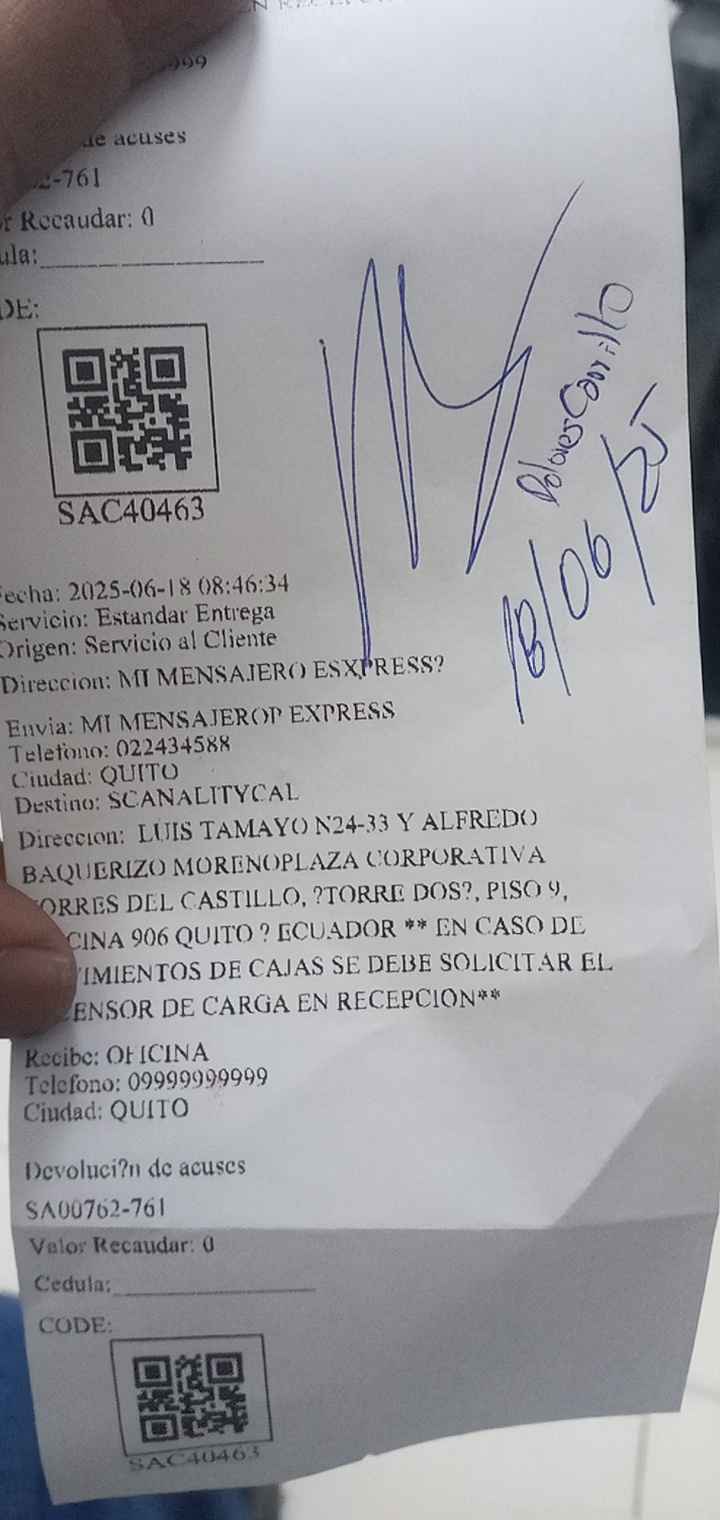 de acuses
-761
Recaudar: 0
SAC40463
Dolores Carrillo
18/06/25
Fecha: 2025-06-18 08:46:34
Servicio: Estandar Entrega
Origen: Servicio al Cliente
Direccion: MI MENSAJERO ESXPRESS?
Envia: MI MENSAJEROP EXPRESS
Telefono: 022434588
Ciudad: QUITO
Destino: SCANALITYCAL
Direccion: LUIS TAMAYO N24-33 Y ALFREDO
BAQUERIZO MORENOPLAZA CORPORATIVA
TORRES DEL CASTILLO, ?TORRE DOS?, PISO 9,
CINA 906 QUITO ? ECUADOR ** EN CASO DE
IMIENTOS DE CAJAS SE DEBE SOLICITAR EL
ENSOR DE CARGA EN RECEPCION**
Recibe: OFICINA
Telefono: 09999999999
Ciudad: QUITO
Devoluci?n de acuses
SA00762-761
Valor Recaudar: 0
Cedula:
CODE:
SAC40463